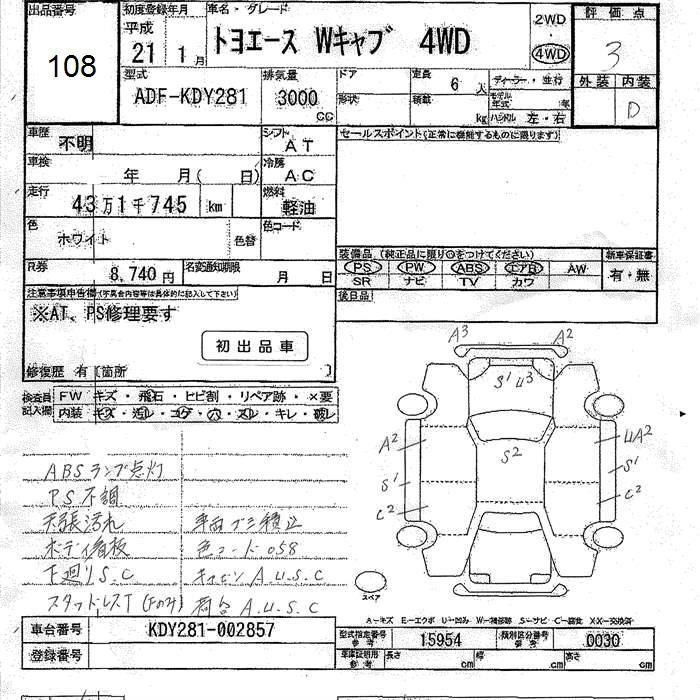 出品番号 初度登録年月 車名・グレード 2WD 評価点
108 平成 21 1月 トヨエース Wキャブ 4WD 4WD 3
型式 排気量 ドア 定員 6人 ディーラー・並行 外装 内装
ADF-KDY281 3000 cc 形状 積載 kg モデル年式 年 D
ハンドル 左・右
車歴 不明 シフト AT セールスポイント(正常に機能するものに限ります)
車検 年 月( 日) 冷房 AC
走行 43万1千745 km 燃料 軽油
色 ホワイト 色替 色コード
装備品 (純正品に限り○をつけてください) 新車保証書
PS PW ABS エアB AW 有・無
R券 8,740円 名変通知期限 月 日 SR ナビ TV カワ
注意事項申告欄(不具合内容等は具体的に記入して下さい) 後日品
※AT、PS修理要す
初出品車
修復歴 有 [箇所 ]
検査員記入欄 FW キズ・飛石・ヒビ割・リペア跡・×要
内装 キズ・汚レ・コゲ・穴・スレ・キレ・破レ
A3 A2
S1 U3
A2 S2 UA2
S1 S1
C2 C2
ABSランプ点灯
PS不調
天張汚れ 車両ゴミ積込
ボディ看板 色コード 058
下廻りS.C キャビンA.U.S.C
スタッドレスT(Fのみ) 荷台A.U.S.C
スペア
A-キズ E-エクボ U-凹み W-補修跡 S-サビ C-腐食 XX-交換済
車台番号 KDY281-002857 型式指定番号 参考 15954 類別区分番号 参考 0030
登録番号 車庫証明用 参考 長さ cm 幅 cm 高さ cm